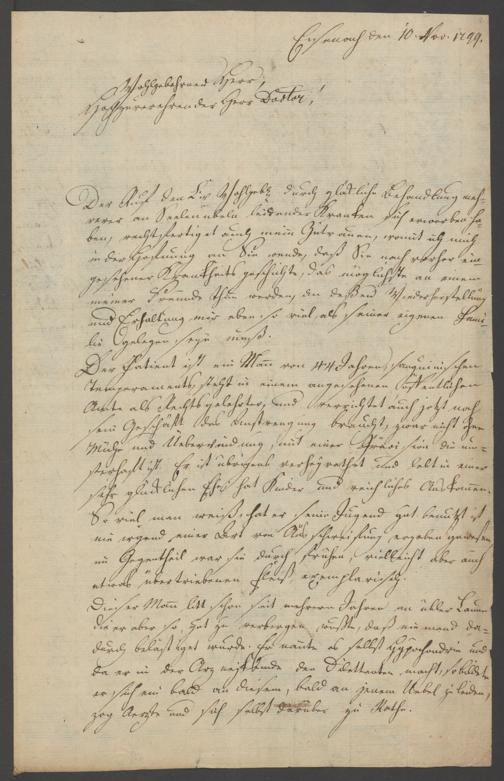 Eisenach den 10. Nov. 1799.
Wohlgebohrner Herr,
Hochzuverehrender Herr Doctor!
Der Ruf den Ew. Wohlgeb. durch glückliche Behandlung meh-
rerer an Seelenübeln leidender Kranken sich erworben ha-
ben, rechtfertiget auch mein Zutrauen, womit ich mich
in der Hofnung an Sie wende, daß Sie nach vorher ein
gesehener Krankheitsgeschichte, das möglichste an einem
meiner Freunde thun werden, an deßen Wiederherstellung
und Erhaltung mir eben so viel als seiner eigenen Fami-
lie gelegen seyn muß.
Der Patient ist ein Mann von 44 Jahren, sanguinischen
Temperaments, steht in einem angesehenen öffentlichen
Amte als Rechtsgelehrter, und verrichtet auch jetzt noch
sein Geschäft das Anstrengung braucht, zwar nicht ohne
Mühe und Ueberwindung, mit einer Präcision die mu-
sterhaft ist. Er ist übrigens verheyrathet und lebt in einer
sehr glücklichen Ehe, hat Kinder und reichliches Auskommen.
So viel man weiß, hat er seine Jugend gut benutzt, ist
nie irgend einer Art von Ausschweifung ergeben gewesen,
im Gegentheil war sie durch frühen, vielleicht aber auch
etwas übertriebenen Fleiß exemplarisch.
Dieser Mann litt schon seit mehrern Jahren an übler Laune
die er aber so gut zu verbergen wußte, daß niemand da-
durch belästiget wurde. Er nannte es selbst Hypochondrie und
da er in der Arzneykunde den Dilettanten macht, so bildete
er sich ein bald an diesem, bald an jenem Uebel zu leiden,
zog Aerzte und sich selbst darüber zu Rathe.